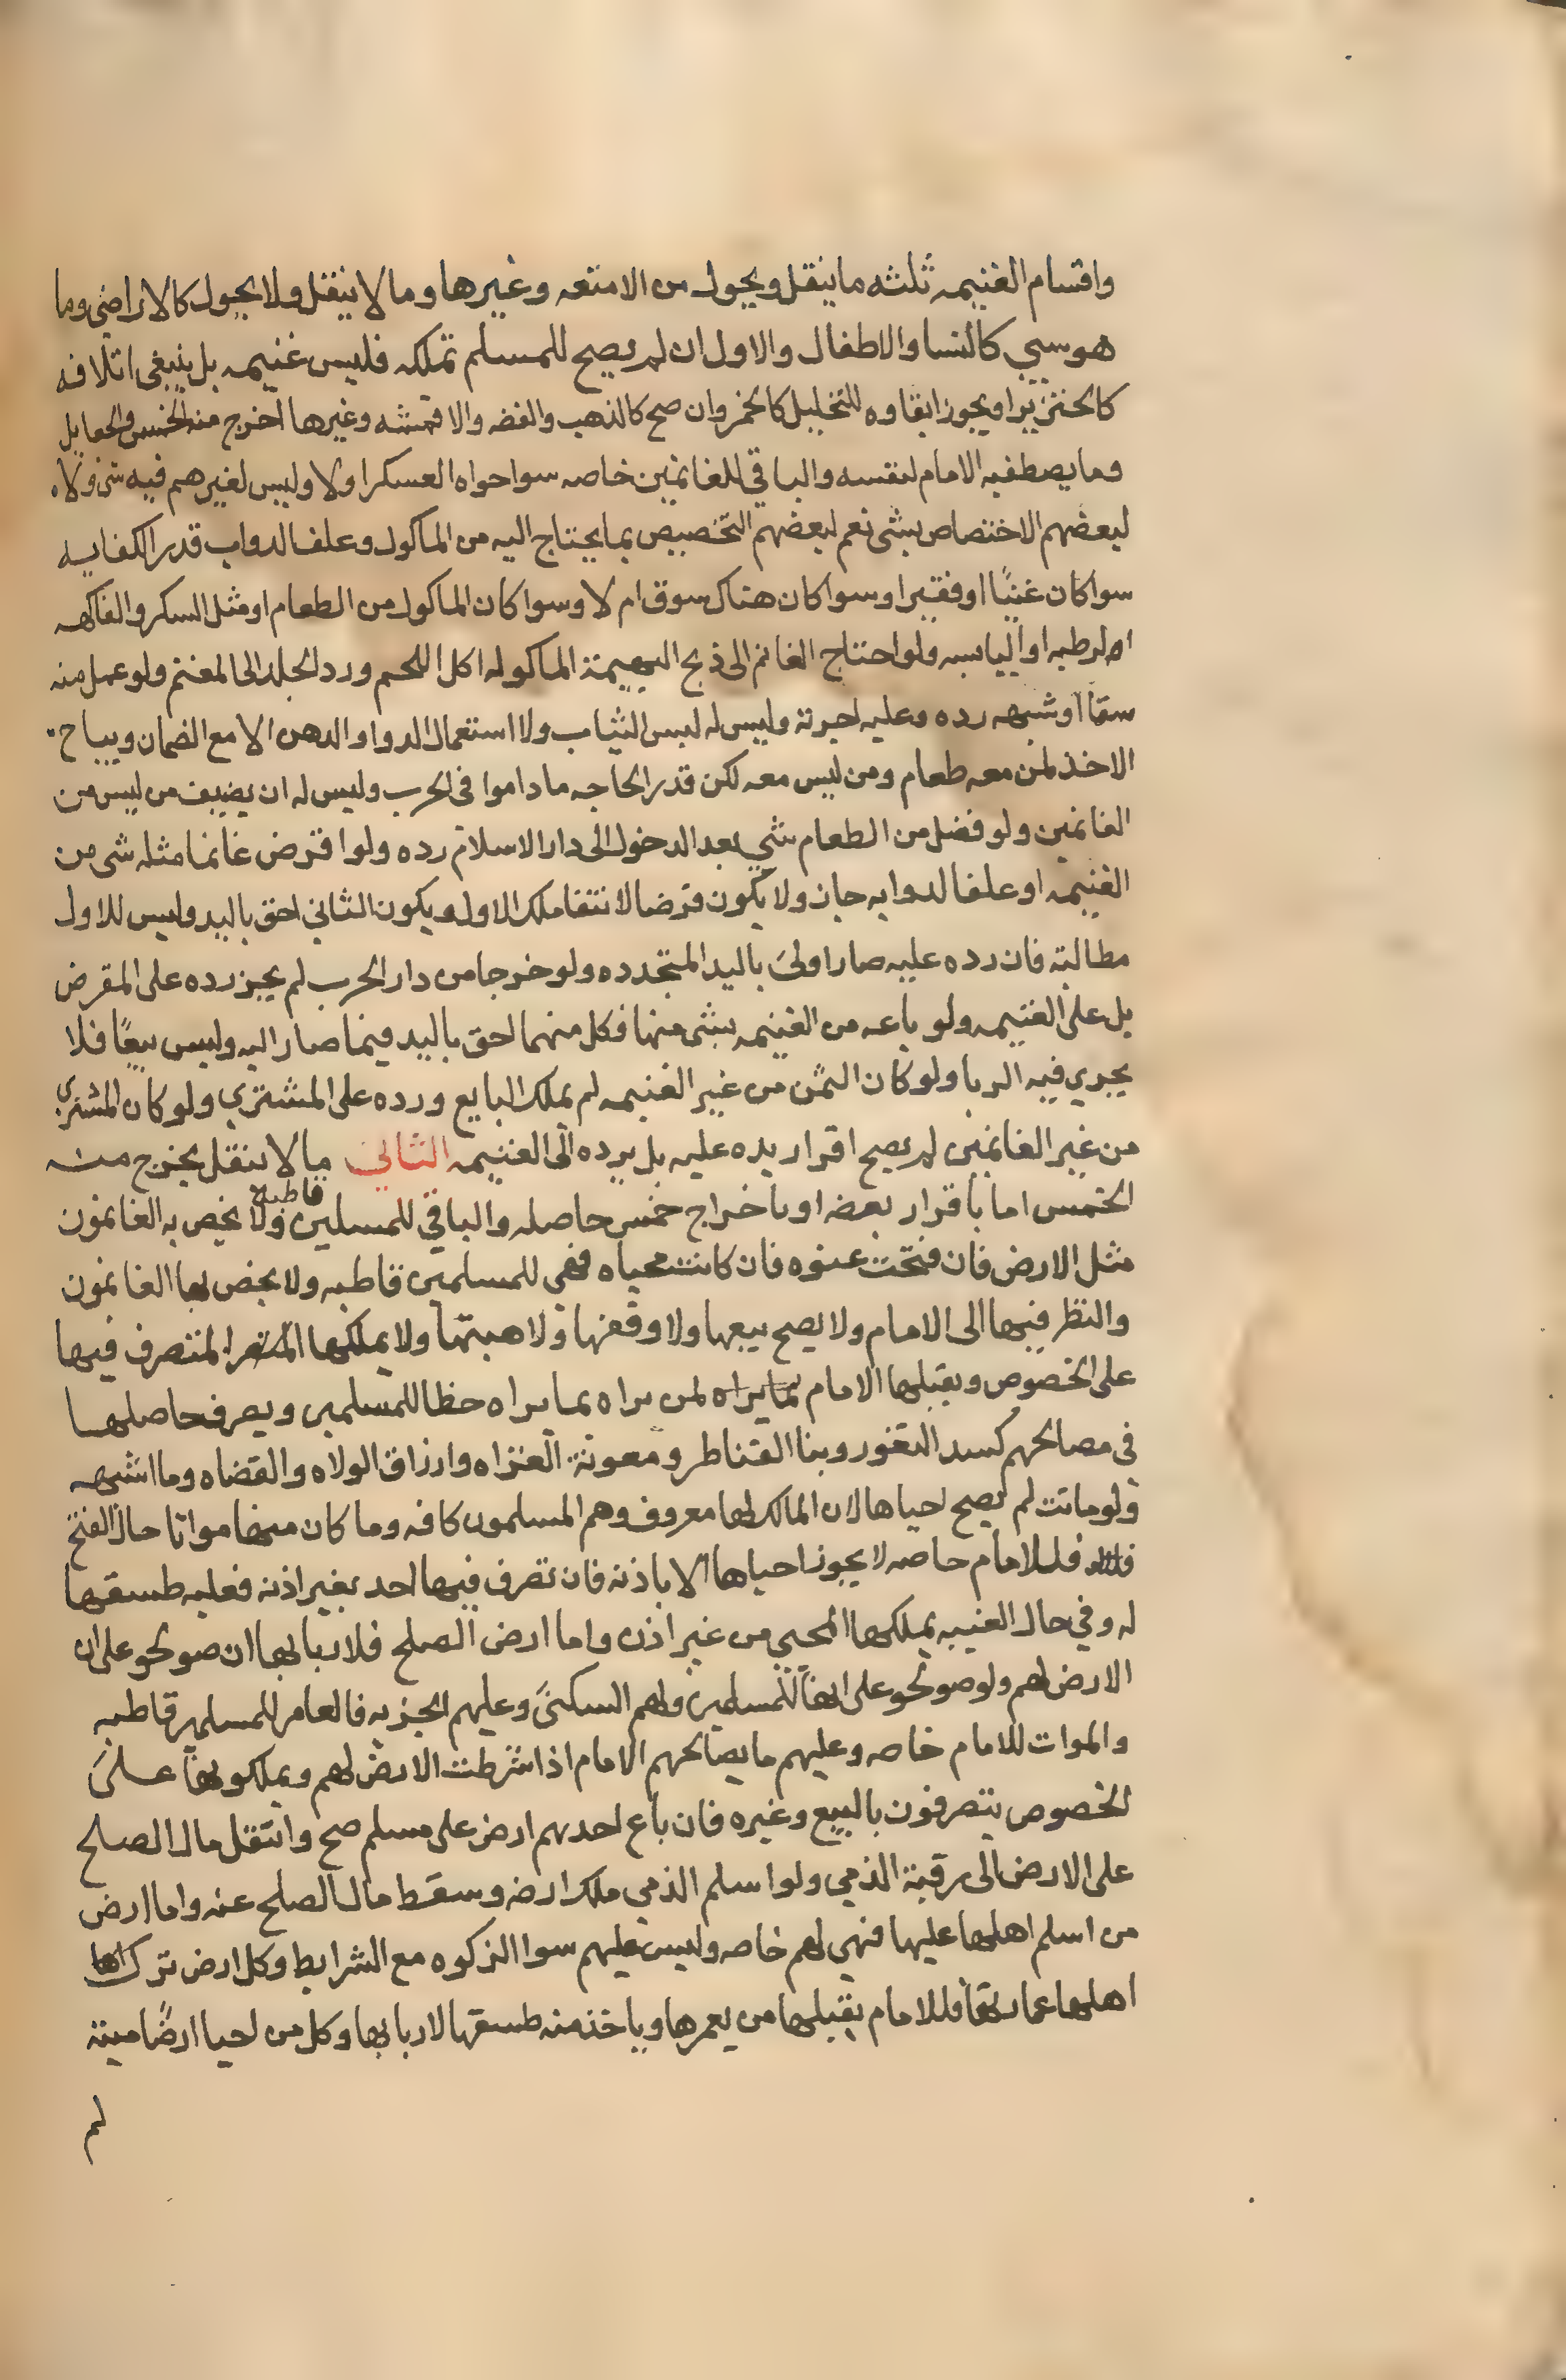 واقسام الغنيمه ثلثه ما ينقل ويحول من الامتعه وغيرها وما لا ينقل ولا يحول كالاراضي وما
هو سبي كالنسا والاطفال والاول ان لم يصح للمسلم تملكه فليس غنيمه بل ينبغي اتلافه
كالخنزير او يجوز ابقاوه للتخليل كالخمر وان صح كالذهب والفضه والاقمشه وغيرها اخرج منه الخمس والجعايل
وما يصطفيه الامام لنفسه والباقي للغانمين خاصه سوا حواه العسكر اولا وليس لغيرهم فيه شي ولا
لبعضهم الاختصاص بشي نعم لبعضهم التخصيص بما يحتاج اليه من الماكول وعلف الدواب قدر الكفايه
سوا كان غنيًا او فقيرا وسوا كان هناك سوق ام لا وسوا كان الماكول من الطعام او مثل السكر والفاكهه
الرطبه او اليابسه ولو احتاج الغانم الى ذبح البهيمة الماكوله اكل اللحم ورد الجلد الى المغنم ولو عمل منه
سقاً او شبهه رده وعليه اجرته وليس له لبس الثياب ولا استعمال الدوا والدهن الا مع الضمان ويباح
الاخذ لمن معه طعام ومن ليس معه لكن قدر الحاجه ما داموا في الحرب وليس له ان يضيف من ليس من
الغانمين ولو فضل من الطعام شي بعد الدخول الى دار الاسلام رده ولو اقترض غانما مثله شي من
الغنيمه او علفا لدوابه جاز ولا يكون قرضا لانتفا ملك الاول ويكون الثاني احق باليد وليس للاول
مطالبته فان رده عليه صار اولى باليد المتجدده ولو خرجا من دار الحرب لم يجز رده على المقرض
بل على الغنيمه ولو باعه من الغنيمه بشي منها فكل منهما احق باليد فيما صار اليه وليس بيعًا فلا
يجري فيه الربا ولو كان الثمن من غير الغنيمه لم يملك البايع ورده على المشتري ولو كان المشتري
من غير الغانمين لم يصح اقرار يده عليه بل يرده الى الغنيمه الثاني ما لا ينقل يخرج منه
الخمس اما باقرار بعضه او باخراج خمس حاصله والباقي للمسلمين قاطبه ولا يخص به الغانمون
مثل الارض فان فتحت عنوه فان كانت محياه فهي للمسلمين قاطبه ولا يخص بها الغانمون
والنظر فيها الى الامام ولا يصح بيعها ولا وقفها ولا هبتها ولا يملكها المتصرف فيها
على الخصوص ويقبلها الامام بما يراه لمن يراه بما يراه حظا للمسلمين ويصرف حاصلها
في مصالحهم كسد الثغور وبنا القناطر ومعونة الغزاه وارزاق الولاه والقضاه وما اشبهه
ولو ماتت لم يصح احياها لان المالك لها معروف وهم المسلمون كافه وما كان منها مواتا حال الفتح
فللامام خاصه لا يجوز احياها الا باذنه فان تصرف فيها احد بغير اذنه فعليه طسقها
له وفي حال الغيبه يملكها المحيي من غير اذن واما ارض الصلح فلاربابها ان صولحو على ان
الارض لهم ولو صولحو على انها للمسلمين ولهم السكنى وعليهم الجزيه فالعامر للمسلمين قاطبه
والموات للامام خاصه وعليهم ما يصالحهم الامام اذا شرطت الارض لهم ويملكونها على
الخصوص يتصرفون بالبيع وغيره فان باع احدهم ارض على مسلم صح وانتقل مال الصلح
على الارض الى رقبة الذمي ولو اسلم الذمي ملك ارضه وسقط مال الصلح عنه واما ارض
من اسلم اهلها عليها فهي لهم خاصه وليس عليهم سوا الزكوه مع الشرايط وكل ارض ترك
اهلها عمارتها فللامام يقبلها من يعمرها وياخذ منه طسقها لاربابها وكل من احيا ارضًا ميتة
لم